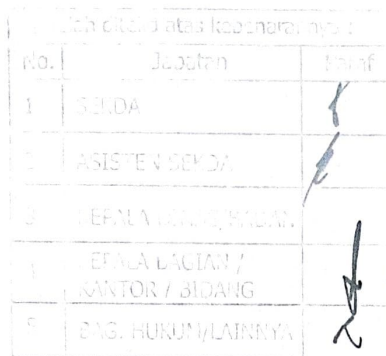 atas kebenarannya :
No. Jabatan Paraf
1 SEKDA
2 ASISTEN SEKDA
3 KEPALA
4 KEPALA BAGIAN /
KANTOR / BIDANG
5 BAG. HUKUM/LAINNYA